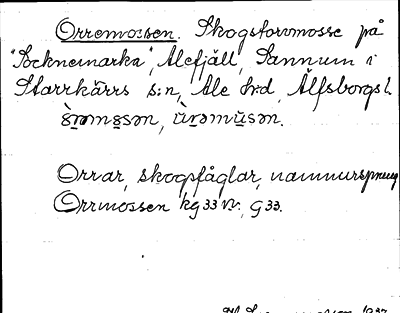 Orremossen. Skogstorvmosse på
"Socknemarka", Alefjäll, Sannum i
Starrkärrs s:n, Ale hrd, Älfsborgs l.
Orrar, skogsfåglar, namnursprung
Orrmossen kg 33 nv. G 33.